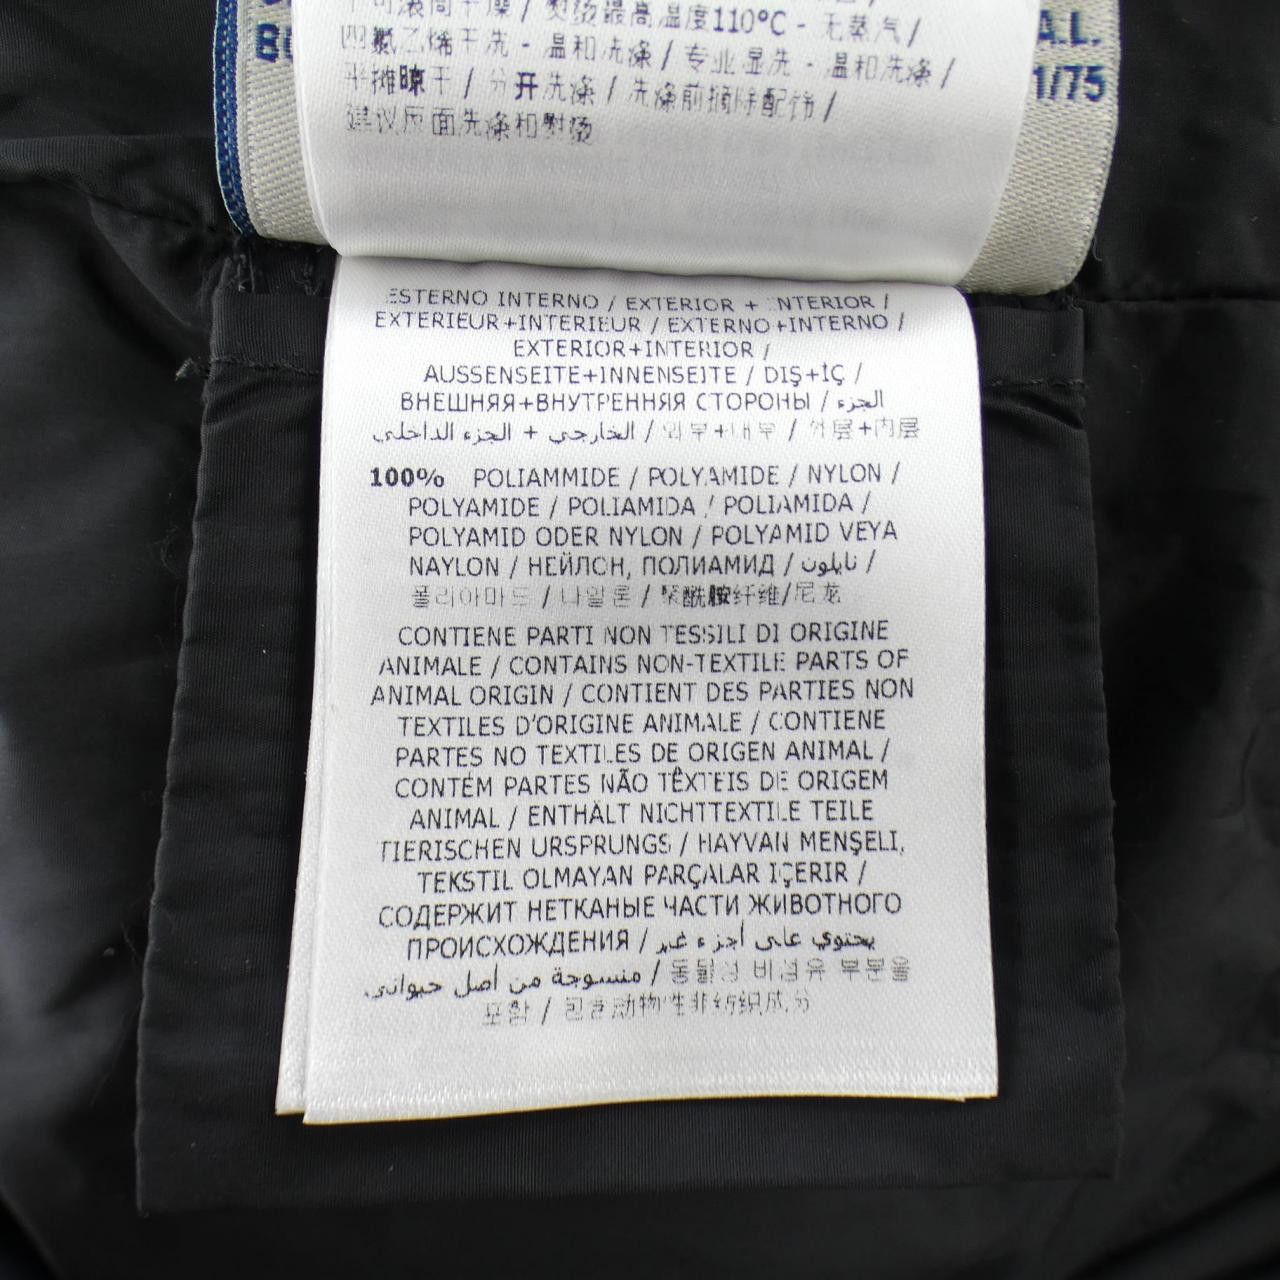 不可滚筒干燥 / 熨烫最高温度110°C - 无蒸汽 /
四氯乙烯干洗 - 温和洗涤 / 专业湿洗 - 温和洗涤 /
平摊晾干 / 分开洗涤 / 洗涤前摘除配饰 /
建议反面洗涤和熨烫
A.L.
1/75
ESTERNO INTERNO / EXTERIOR + INTERIOR /
EXTERIEUR+INTERIEUR / EXTERNO+INTERNO /
EXTERIOR+INTERIOR /
AUSSENSEITE+INNENSEITE / DIŞ+İÇ /
ВНЕШНЯЯ+ВНУТРЕННЯЯ СТОРОНЫ / الجزء
الخارجي + الجزء الداخلي / 외부+내부 / 外层+内层
100% POLIAMMIDE / POLYAMIDE / NYLON /
POLYAMIDE / POLIAMIDA / POLIAMIDA /
POLYAMID ODER NYLON / POLYAMID VEYA
NAYLON / НЕЙЛОН, ПОЛИАМИД / نايلون /
폴리아마드 / 나일론 / 聚酰胺纤维/尼龙
CONTIENE PARTI NON TESSILI DI ORIGINE
ANIMALE / CONTAINS NON-TEXTILE PARTS OF
ANIMAL ORIGIN / CONTIENT DES PARTIES NON
TEXTILES D'ORIGINE ANIMALE / CONTIENE
PARTES NO TEXTILES DE ORIGEN ANIMAL /
CONTÉM PARTES NÃO TÊXTEIS DE ORIGEM
ANIMAL / ENTHÄLT NICHTTEXTILE TEILE
TIERISCHEN URSPRUNGS / HAYVAN MENŞELİ,
TEKSTIL OLMAYAN PARÇALAR IÇERIR /
СОДЕРЖИТ НЕТКАНЫЕ ЧАСТИ ЖИВОТНОГО
ПРОИСХОЖДЕНИЯ / يحتوي على أجزاء غير
منسوجة من أصل حيواني / 동물성 비섬유 부분을
포함 / 包含动物性非纺织成分